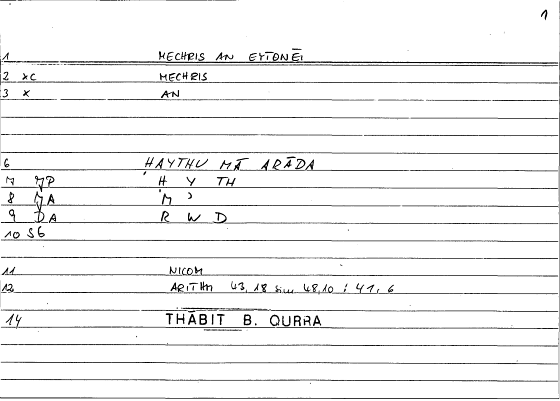 1
1 MECHRIS AN EYTONĒI
2 xc MECHRIS
3 x AN
6 ḤAYTHU MĀ ARĀDA
Ḥ Y TH
8 M ʾ
9 R W D
10 S6
11 NICOM
12 ARITHM 43, 18 sim 48,10 ; 41, 6
14 THĀBIT B. QURRA